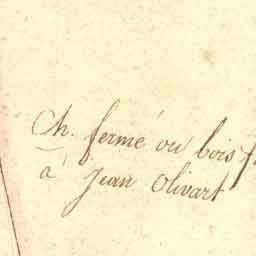 Ch. fermé ou bois
à Jean Olivart